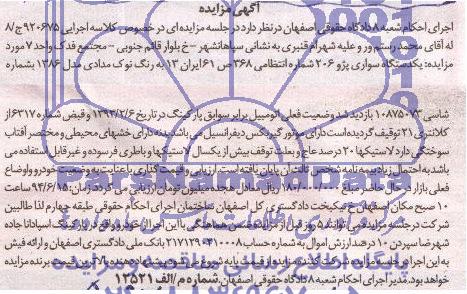 آگهی مزایده
اجرای احکام شعبه ۸ دادگاه حقوقی اصفهان در نظر دارد در جلسه مزایده ای در خصوص کلاسه اجرایی ۹۲۰۶۷۵ج/۸
له آقای محمد رستم پور و علیه شهرام قنبری به نشانی سپاهانشهر – خ بلوار قائم جنوبی – مجتمع فدک واحد ۷ مورد
مزایده: یکدستگاه سواری پژو ۲۰۶ شماره انتظامی ۳۶۸ ص ۶۱ ایران ۱۳ به رنگ نوک مدادی مدل ۱۳۸۶ بشماره
شاسی ۱۰۸۷۵۰۷۳ بازدید شد وضعیت فعلی اتومبیل برابر سوابق پارکینگ در تاریخ ۱۳۹۳/۲/۶ و قبض شماره ۶۳۱۷ از
کلانتری ۲۱ توقیف گردیده است دارای موتور گیربکس دیفرانسیل می باشد بدنه دارای خشهای محیطی و مختصر آفتاب
سوختگی دارد لاستیکها ۲۰ درصد عاج و بعلت توقف بیش از یکسال لاستیکها و باطری فرسوده و غیر قابل استفاده می
باشد به احتمال زیاد بیمه نامه شخص ثالث آن پایان یافته است. ارزیابی و قیمت گذاری با عنایت به وضعیت خودرو و اوضاع
فعلی بازار در حال حاضر به مبلغ ریال معادل هجده میلیون تومان ارزیابی می گردد زمان: ۹۴/۶/۱۵ ساعت
۱۰ صبح مکان اصفهان خ نیکبخت دادگستری کل اصفهان ساختمان اجرای احکام حقوقی طبقه چهارم لذا طالبین
شرکت در جلسه مزایده می توانند ۵ روز قبل از مزایده ضمن هماهنگی با این اجرا از خودرو واقع در پارکینگ اسپادانا جاده
شهرضا سپردن ۱۰ درصد ارزش اموال به شماره حساب ۲۱۷۱۲۹۰۲۱۰۰۰۸ بانک ملی دادگستری اصفهان و ارائه فیش
به این اجرای جلسه مزایده شرکت کنند مزایده از قیمت پایه شروع می شود پیشنهاد دهنده بالاترین قیمت، برنده مزایده
خواهد بود. مدیر اجرای احکام شعبه ۸ دادگاه حقوقی اصفهان. شماره م/الف ۱۳۵۲۱